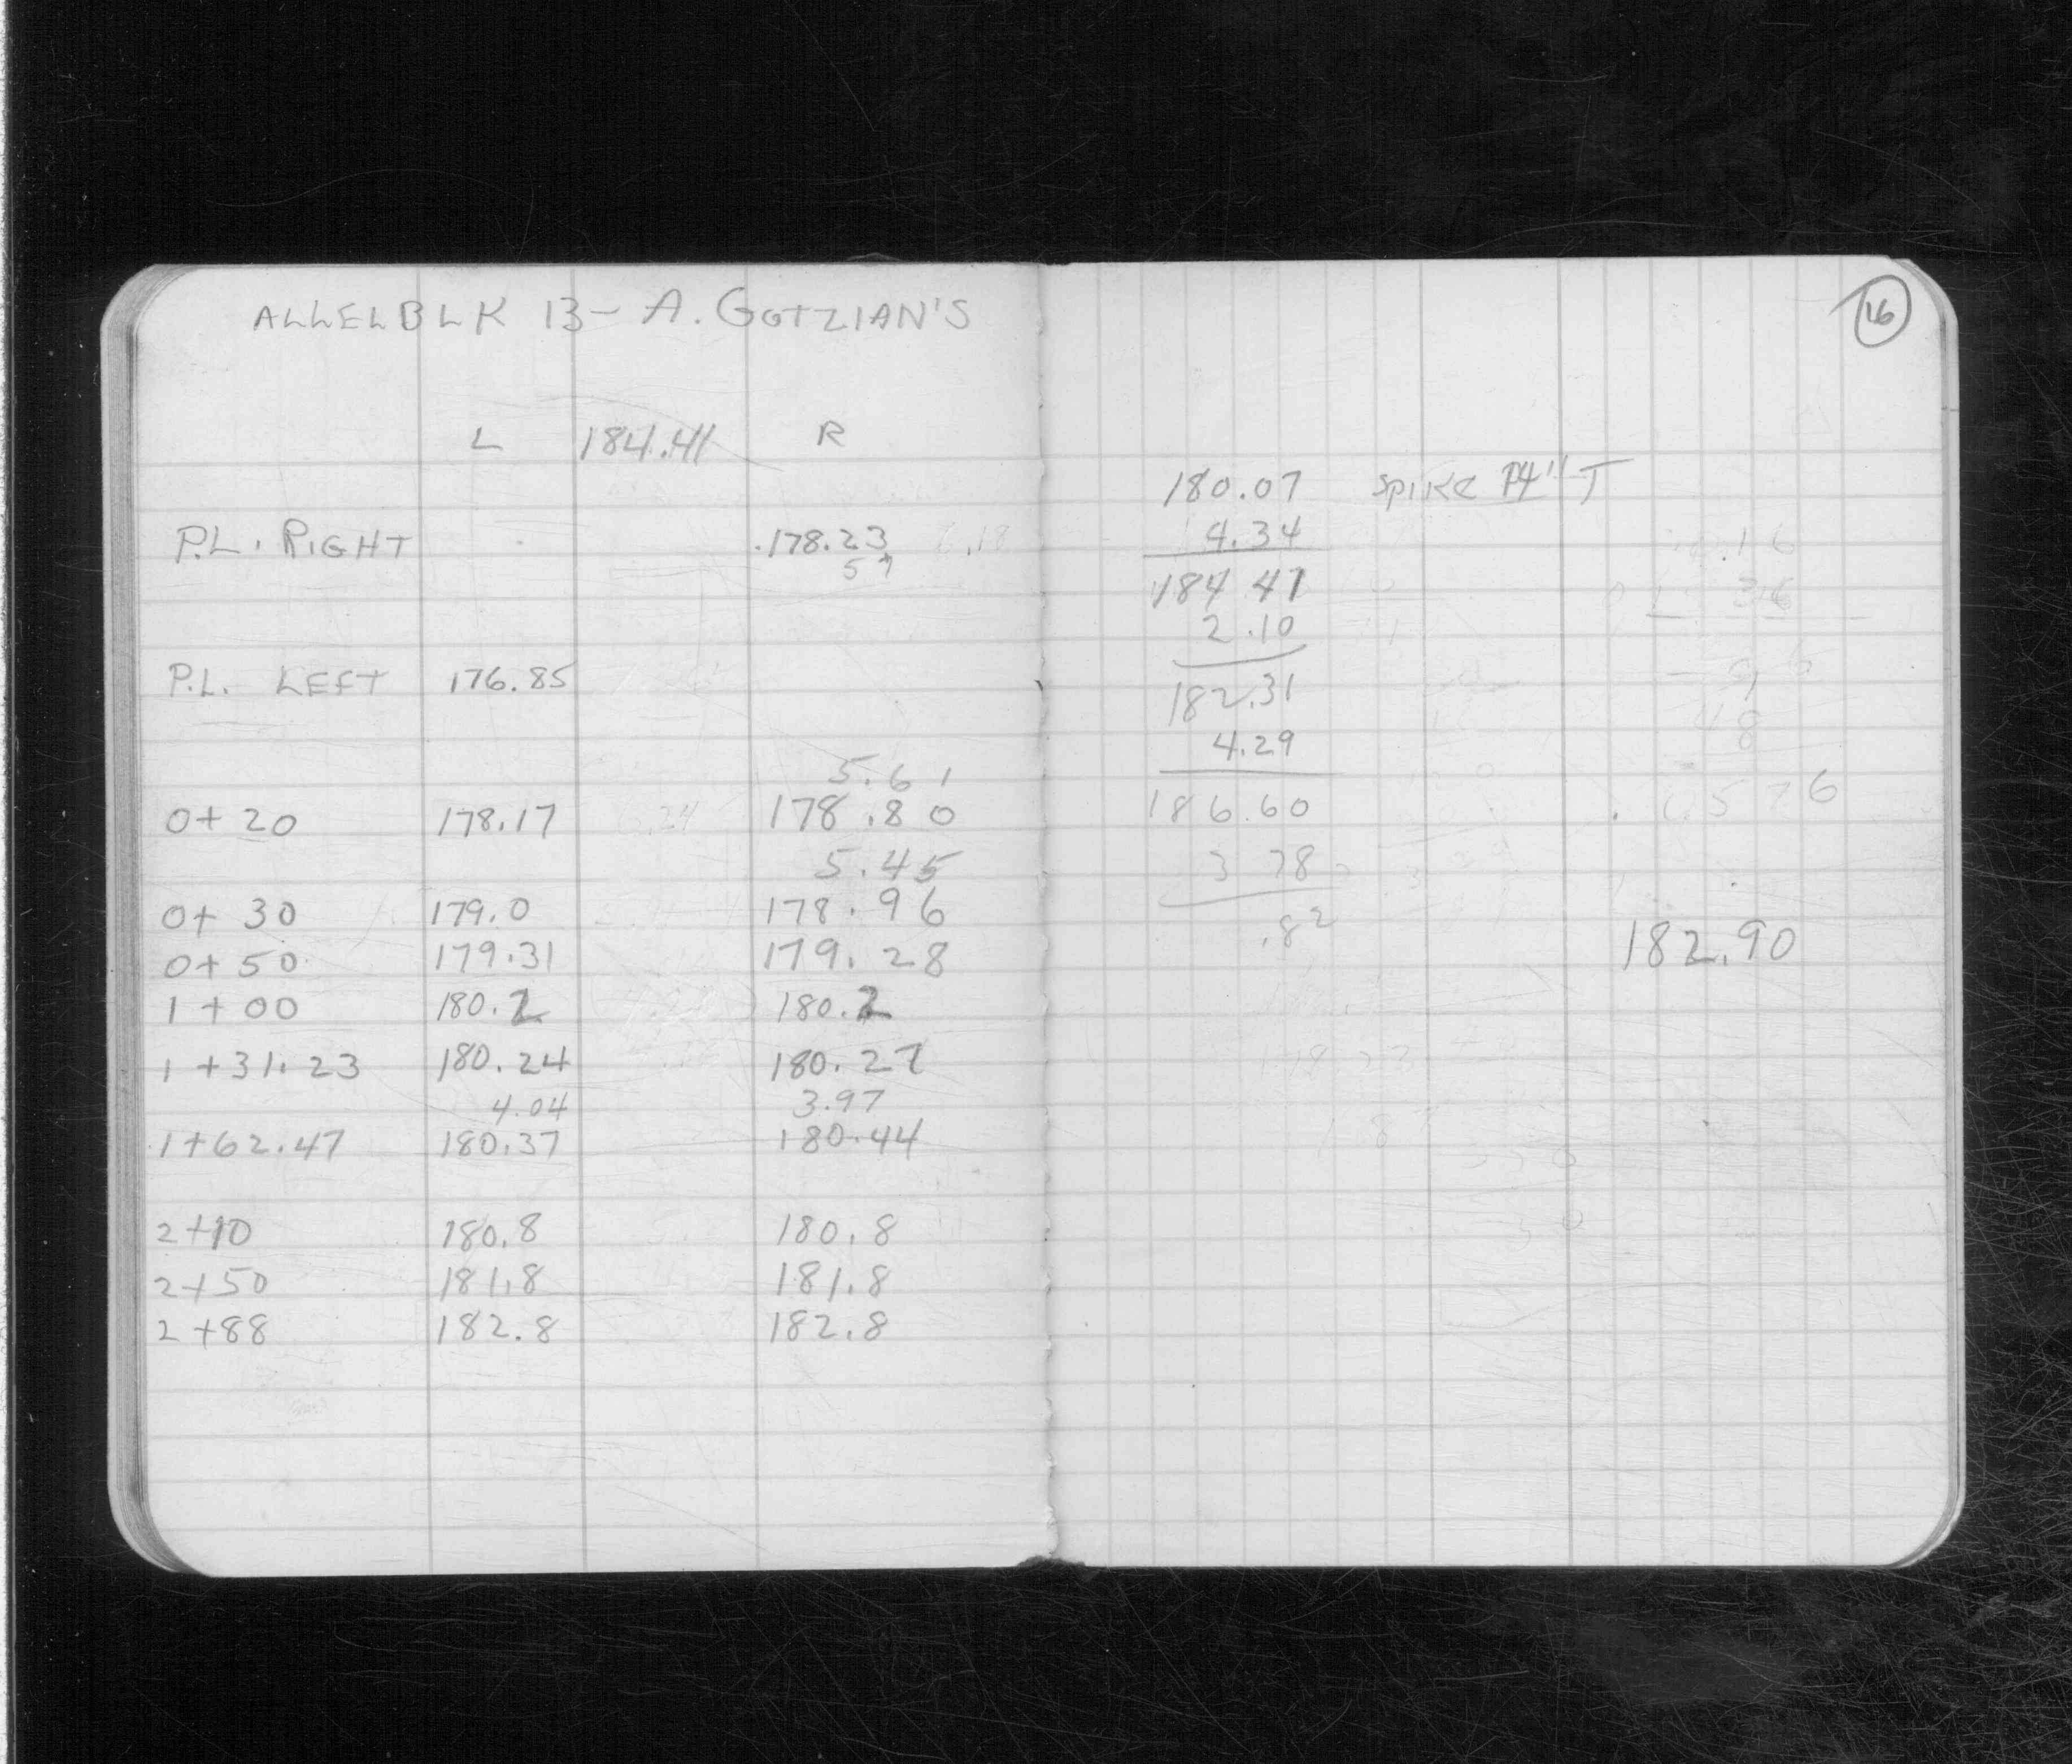 ALLELBLK 13 - A. GOTZIAN'S
L 184.41 R
P.L. RIGHT 178.23 6.18
57
P.L. LEFT 176.85
5.61
0+20 178.17 6.24 178.80
5.45
0+30 179.0 178.96
0+50 179.31 179.28
1+00 180.2 180.2
1+31.23 180.24 180.27
4.04 3.97
1+62.47 180.37 180.44
2+10 180.8 180.8
2+50 181.8 181.8
2+88 182.8 182.8
16
180.07 SPIKE
4.34
184 41
2.10
182.31
4.29
186.60
3 78
.82
182.90